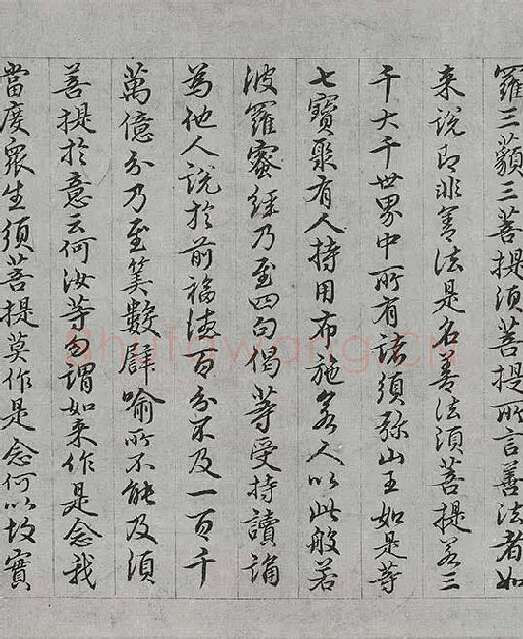 羅三藐三菩提須菩提所言善法者如
来說即非善法是名善法須菩提若三
千大千世界中所有諸須弥山王如是等
七寶聚有人持用布施若人以此般若
波羅蜜經乃至四句偈等受持讀誦
為他人說於前福德百分不及一百千
萬億分乃至筭數譬喻所不能及須
菩提於意云何汝等勿謂如来作是念我
當度眾生須菩提莫作是念何以故實
shufawang.cn